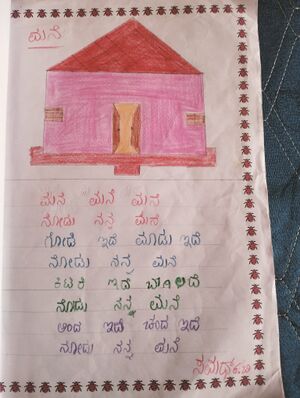 ಮನೆ
ಮನೆ ಮನೆ ಮನೆ
ನೋಡು ನನ್ನ ಮನೆ
ಗೋಡೆ ಇದೆ ಮಾಡು ಇದೆ
ನೋಡು ನನ್ನ ಮನೆ
ಕಿಟಕಿ ಇದೆ ಬಾಗಿಲಿದೆ
ನೋಡು ನನ್ನ ಮನೆ
ಅಂದ ಇದೆ ಚಂದ ಇದೆ
ನೋಡು ನನ್ನ ಮನೆ